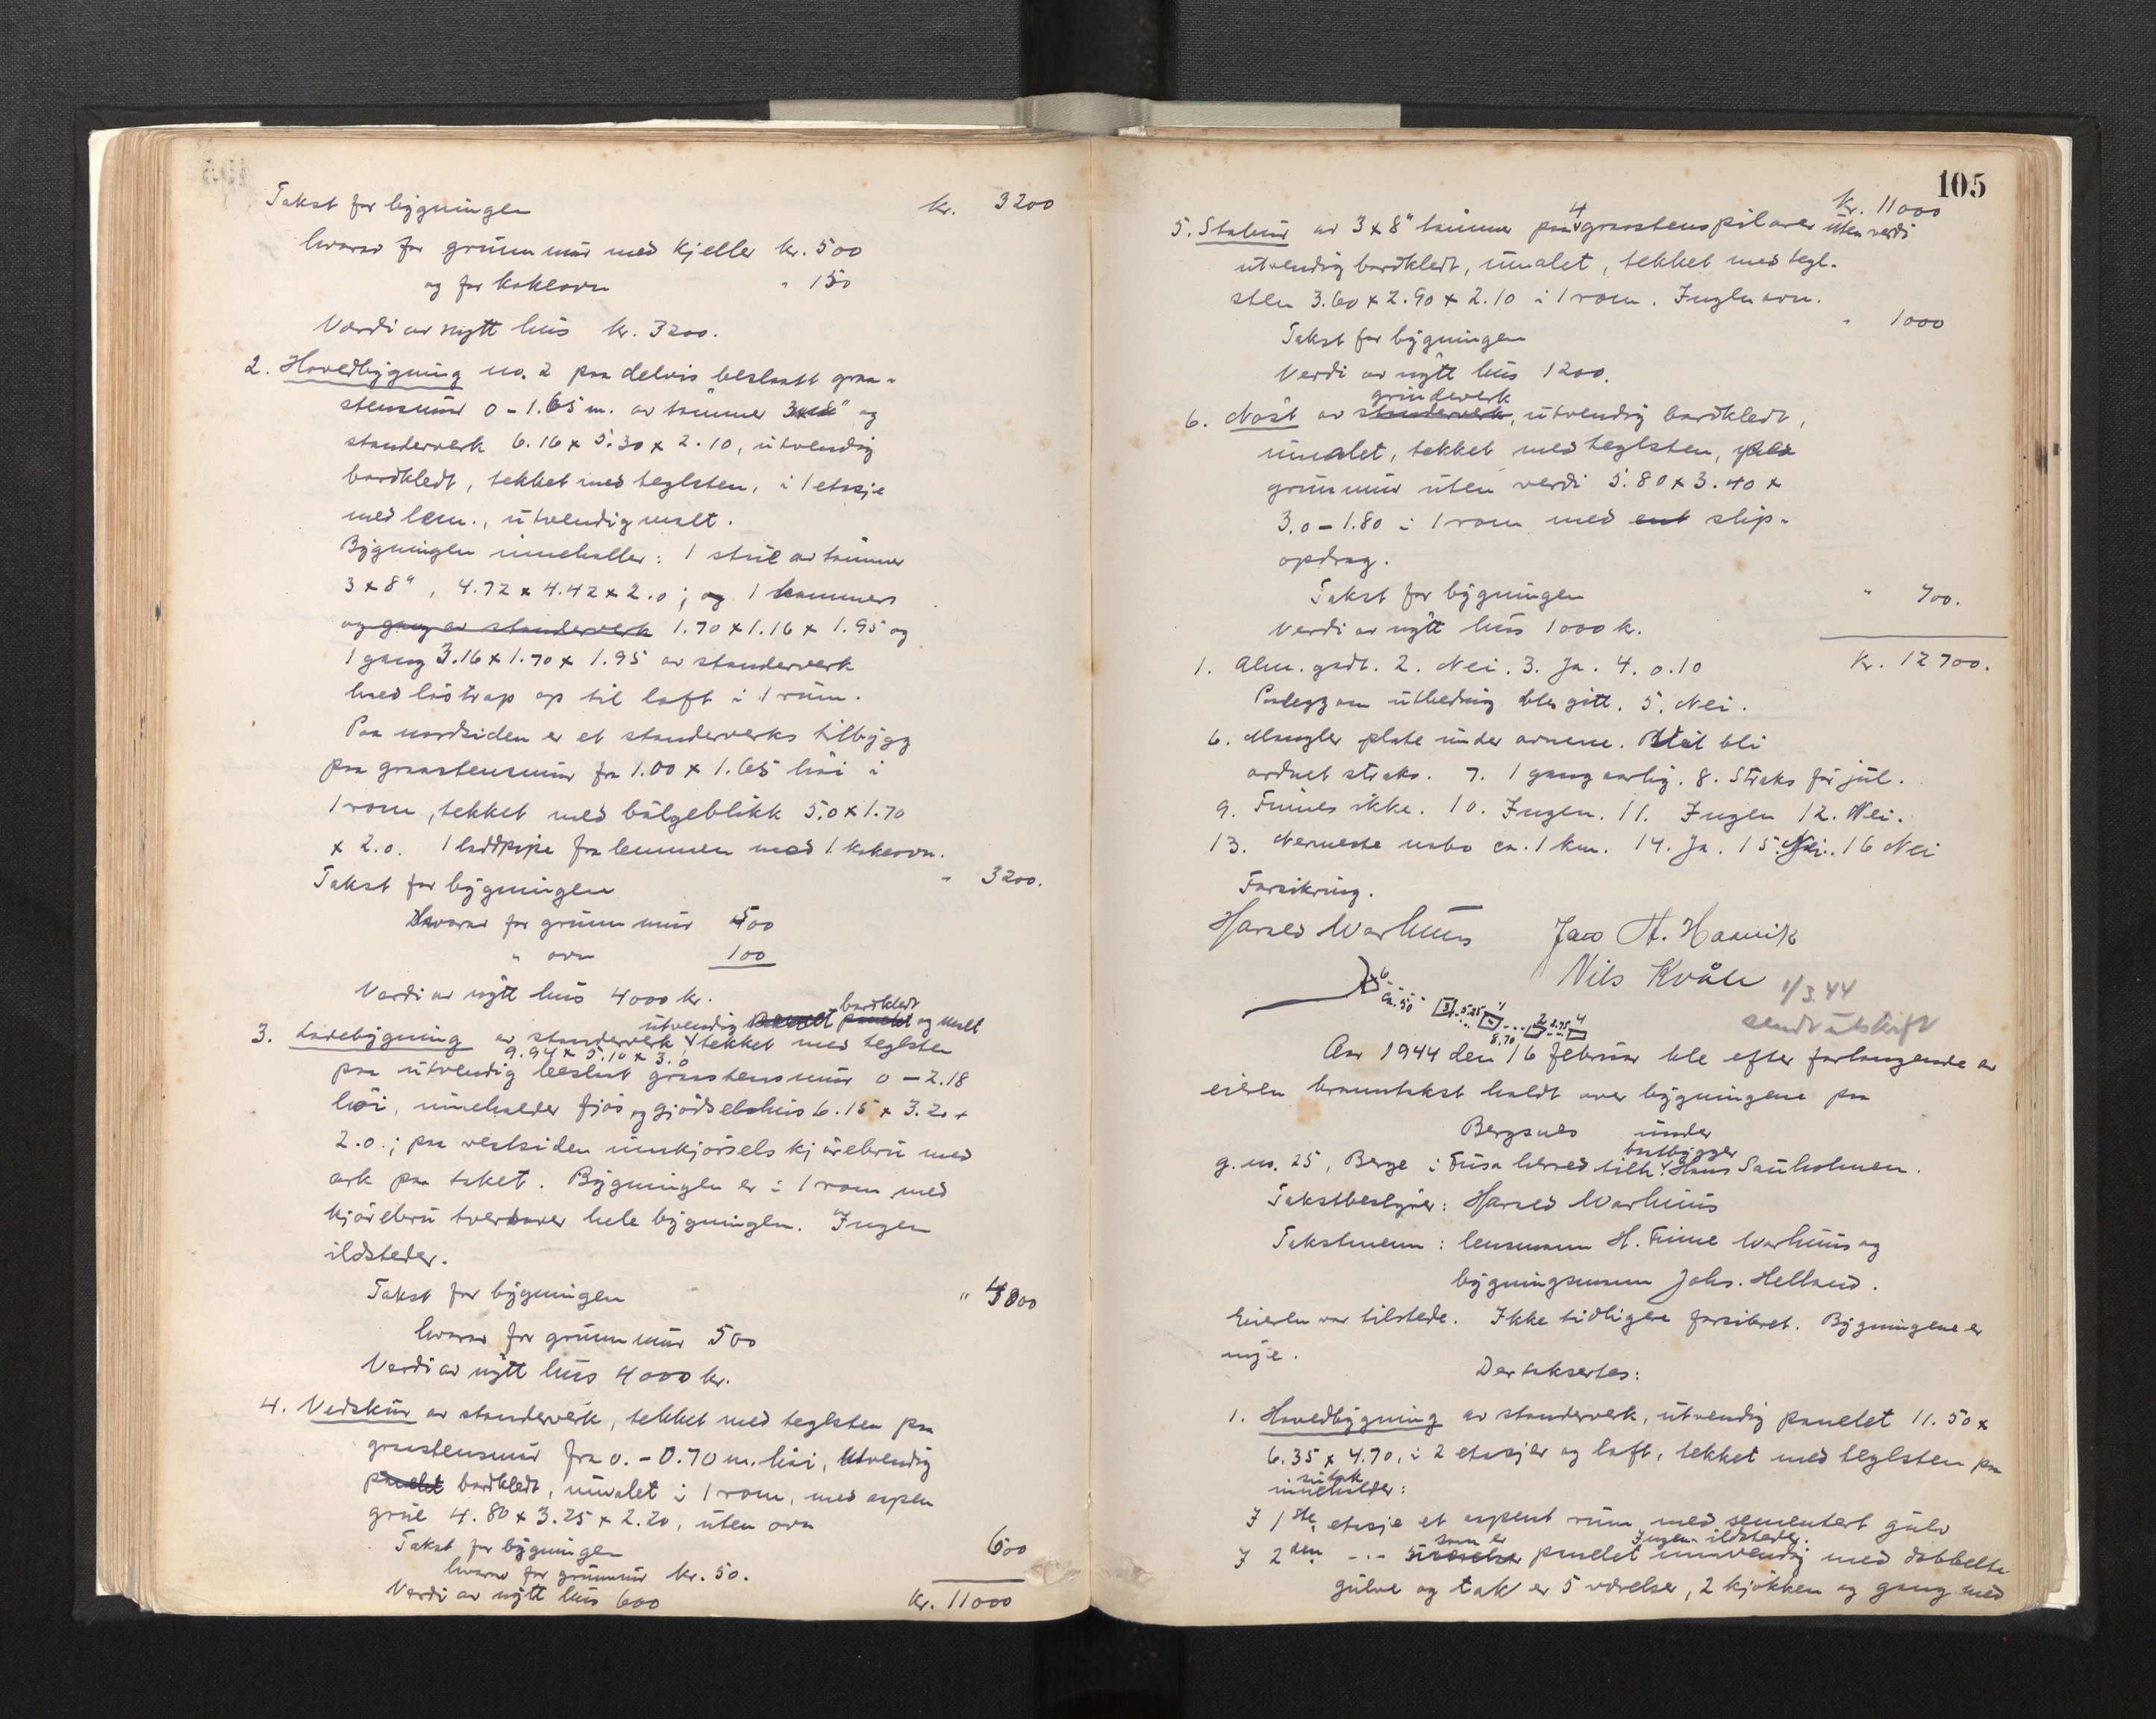 Takst for bygningen kr. 3200
hvorav for grunnmur med kjeller kr. 500
og for kokeovn " 150
Verdi av nytt hus kr. 3200.
2. Hovedbygning no. 2 paa delvis beslaatt graa-
stensmur 0 - 1.65 m. av tømmer 3x8" og
standerverk 6.16 x 5.30 x 2.10, utvendig
bordkledt, tekket med teglsten, i 1 etasje
med lem., utvendig malt.
Bygningen inneholler: 1 stue av tømmer
3 x 8", 4.72 x 4.42 x 2.0; og 1 kammers
og gang av standerverk 1.70 x 1.16 x 1.95 og
1 gang 3.16 x 1.70 x 1.95 av standerverk
med løstrap op til loft i 1 rum.
Paa nordsiden er et standerverks tilbygg
paa graastensmur fra 1.00 x 1.65 høi i
1 rom, tekket med bølgeblikk 5.0 x 1.70
x 2.0. 1 loddpipe fra lemmen med 1 kokeovn.
Takst for bygningen " 3200.
Hvorav for grunnmur 500
" ovn 100
Verdi av nytt hus 4000 kr.
bordkledt
utvendig panelt og malt
3. Løebygning av standerverk tekket med teglsten
9.94 x 5.10 x 3.0
paa utvendig beslut graastensmur 0 - 2.18
høi, inneholder fjøs og gjødselshus 6.15 x 3.20 x
2.0.; paa vestsiden innkjørsels kjørebru med
ark paa taket. Bygningen er i 1 rom med
kjørebru tvers over hele bygningen. Ingen
ildsteder.
Takst for bygningen " 4000
hvorav for grunnmur 500
Verdi av nytt hus 4000 kr.
4. Vedskur av standerverk, tekket med teglsten paa
graastensmur fra 0. - 0.70 m. høi, utvendig
panelt bordkledt, umalet i 1 rom, med aapen
grue 4.80 x 3.25 x 2.20, uten ovn
Takst for bygningen 600
hvorav for grunnmur kr. 50.
Verdi av nytt hus 600 kr. 11000
105
kr. 11000
5. Stabur av 3 x 8" tømmer paa 4 graastenspilarer uten verdi
utvendig bordkledt, umalet, tekket med tegl-
sten 3.60 x 2.90 x 2.10 i 1 rom. Ingen ovn.
Takst for bygningen " 1000
Verdi av nytt hus 1200.
grindverk
6. Nøst av standerverk, utvendig bordkledt,
umalet, tekket med teglsten, paa
grunnmur uten verdi 5.80 x 3.40 x
3.0 - 1.80 i 1 rom med slip-
opdrag.
Takst for bygningen " 700.
Verdi av nytt hus 1000 kr.
1. Alm. godt. 2. Nei. 3. Ja. 4. 0.10 Kr. 12700.
Paalegg om utbedring ble gitt. 5. Nei.
6. Mangler plate under ovnene. Blir bli
ordnet straks. 7. 1 gang aarlig. 8. Straks før jul.
9. Finnes ikke. 10. Ingen. 11. Ingen 12. Nei.
13. Nermeste nabo ca. 1 km. 14. Ja. 15. Nei. 16 Nei
Forsikring.
Harald Warhuus Jaco H. Haavik
Nils Kvåle
1/3.44
sendt utskrift
6 ca. 50 3 5.25 1 8.70 2 2.75 4
Aar 1944 den 16 februar ble efter forlangende av
eieren branntakst holdt over bygningene paa
Bergsnes under
g. no. 25, Berge i Fusa herred tilh. bruttbygger Hans Sauholmen.
Takstbestyrer: Harald Warhuus
Takstmenn: lensmann H. Finne Warhuus og
bygningsmann Johs. Helland.
Eieren var tilstede. Ikke tidligere forsikret. Bygningene er
nye.
Der taksertes:
1. Hovedbygning av standerverk, utvendig panelet 11.50 x
6.35 x 4.70, i 2 etasjer og loft, tekket med teglsten paa
sutak
inneholder:
I 1ste etasje et aapent rum med sementert gulv
som er Ingen ildsteder.
I 2den -"- panelet innvendig med dobbelte
gulve og tak er 5 værelser, 2 kjøkken og gang med